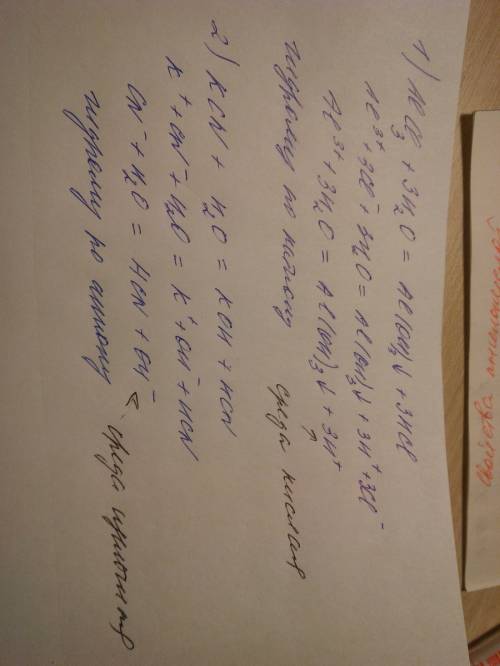 1) AlCl₃ + 3H₂O = Al(OH)₃↓ + 3HCl
Al³⁺ + 3Cl⁻ + 3H₂O = Al(OH)₃↓ + 3H⁺ + 3Cl⁻
Al³⁺ + 3H₂O = Al(OH)₃↓ + 3H⁺
гидролиз по катиону среда кислая
2) KCN + H₂O = KOH + HCN
K⁺ + CN⁻ + H₂O = K⁺ + OH⁻ + HCN
CN⁻ + H₂O = HCN + OH⁻
гидролиз по аниону среда щелочная